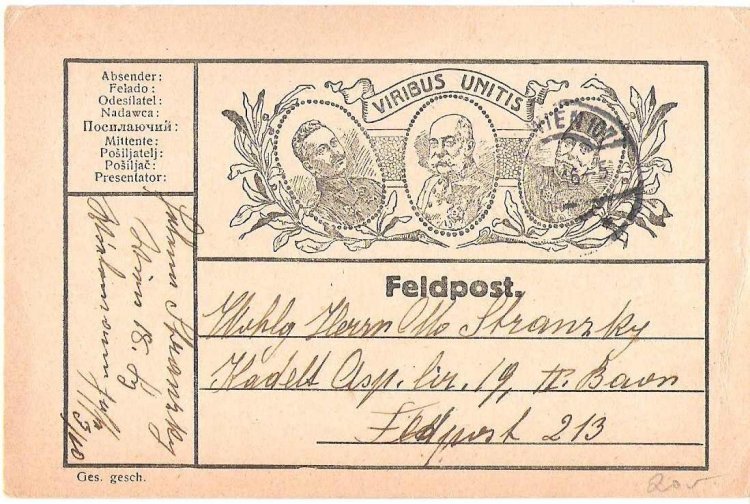 Absender:
Felado:
Odesilatel:
Nadawca:
Посилаючий:
Mittente:
Pošiljatelj:
Pošiljač:
Presentator:
VIRIBUS UNITIS
WIEN 107
Feldpost.
Wohlg Herrn Otto Stranzky
Kadett Asp. Lir. 19, II. Baon
Feldpost 213
Stranzky
Wien 18.
Ges. gesch.